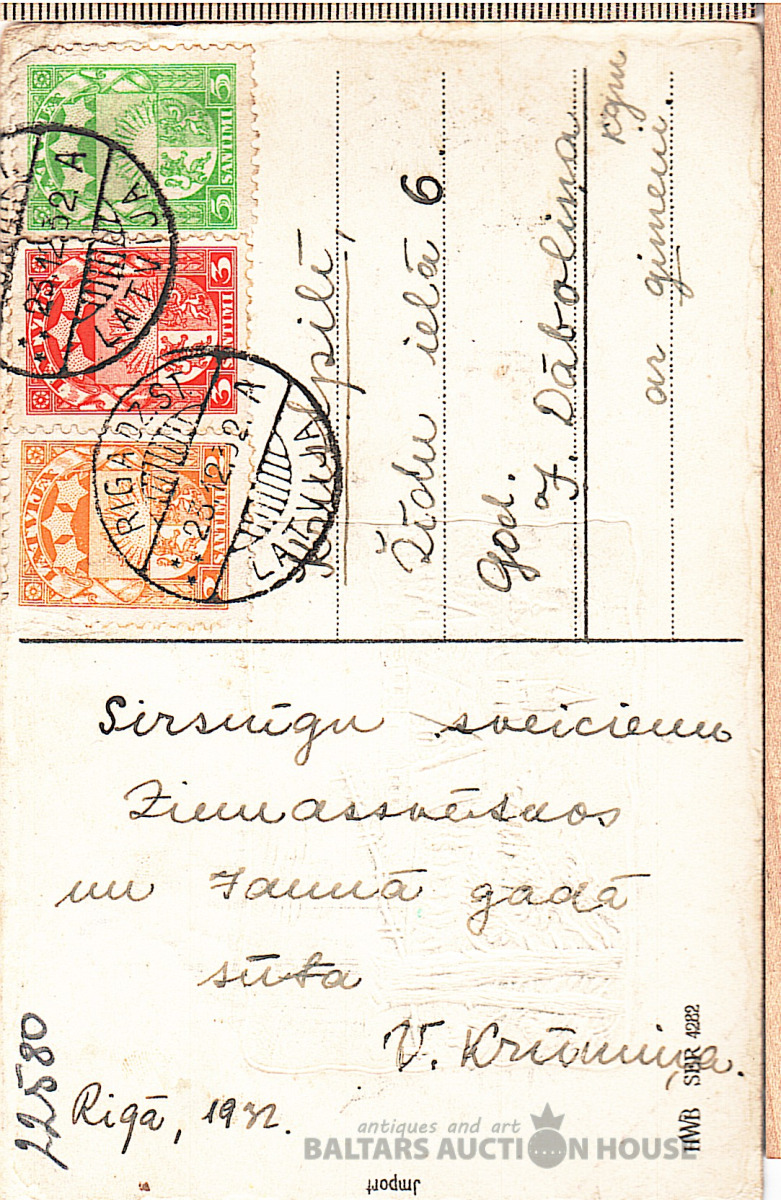 LATVIJA
5 SANTIMI 5
LATVIJA
3 SANTIMI 3
LATVIJA
2 SANTIMI 2
23.12.32 A
LATVIJA
RIGA DZ.ST.
23.12.32 A
LATVIJA
Žīdu ielā 6.
God.
J. Dāboliņa
kgm
ar ģimeni.
Sirsnīgu sveicienu
Ziemassvētkos
un Jaunā gadā
sūta
V. Krūmiņa.
Rīgā, 1932.
22580
HWB SER 4282
Jmport
antiques and art
BALTARS AUCTION HOUSE